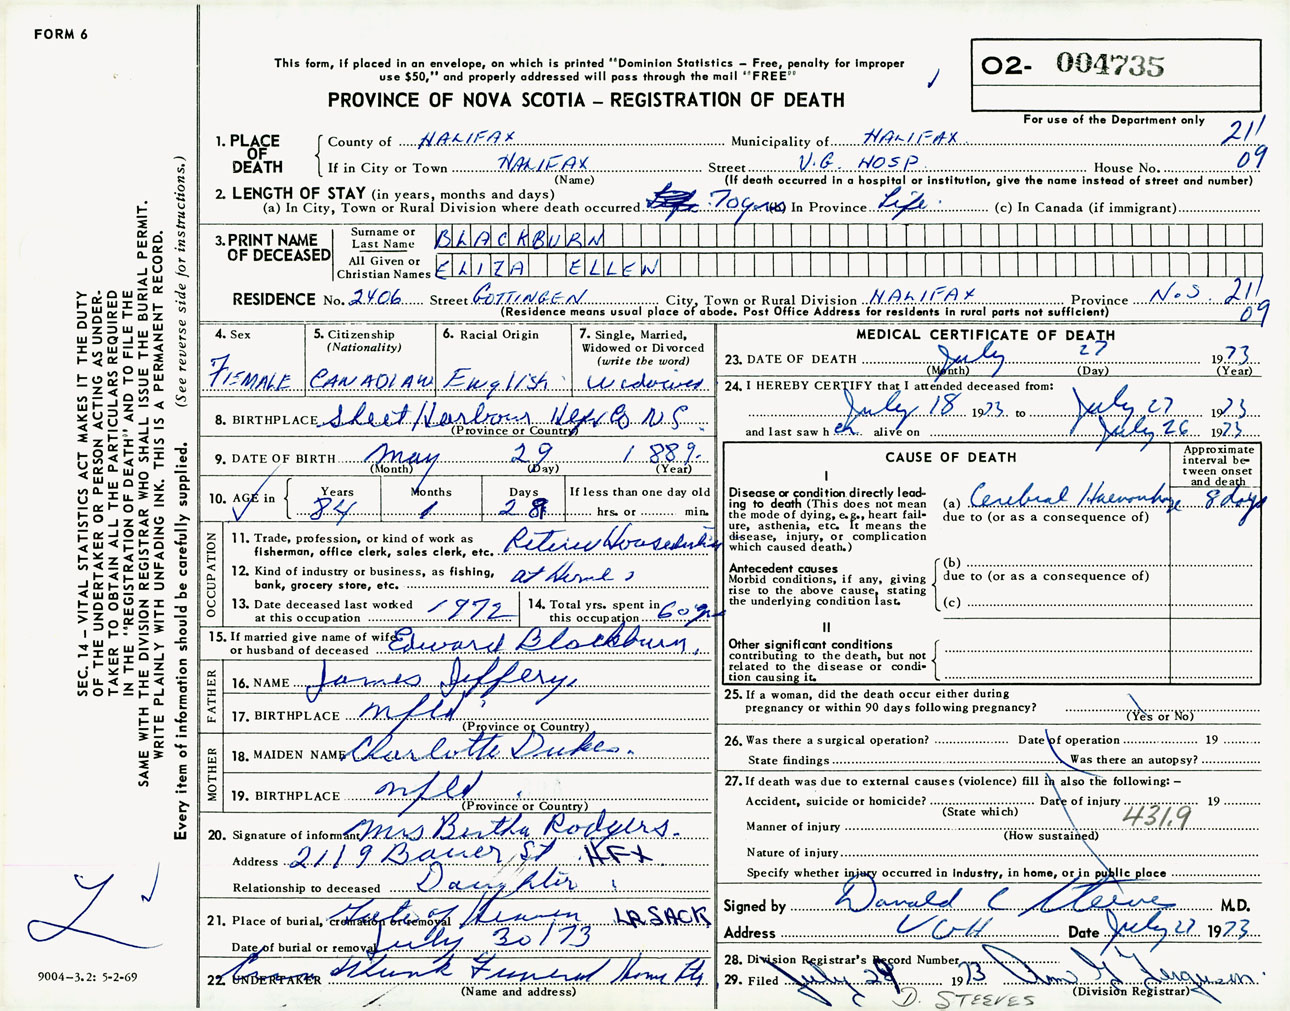 FORM 6
This form, if placed in an envelope, on which is printed "Dominion Statistics – Free, penalty for improper
use $50," and properly addressed will pass through the mail "FREE"
PROVINCE OF NOVA SCOTIA – REGISTRATION OF DEATH
O2- 004735
For use of the Department only
211
09
1. PLACE OF DEATH
County of HALIFAX Municipality of HALIFAX
If in City or Town HALIFAX Street V.G. HOSP. House No.
(Name) (If death occurred in a hospital or institution, give the name instead of street and number)
2. LENGTH OF STAY (in years, months and days)
(a) In City, Town or Rural Division where death occurred 70 yrs (b) In Province Life (c) In Canada (if immigrant)
3. PRINT NAME OF DECEASED
Surname or Last Name BLACKBURN
All Given or Christian Names ELIZA ELLEN
RESIDENCE No. 2406 Street GOTTINGEN City, Town or Rural Division HALIFAX Province N.S. 211
09
(Residence means usual place of abode. Post Office Address for residents in rural parts not sufficient)
4. Sex FEMALE
5. Citizenship (Nationality) CANADIAN
6. Racial Origin English
7. Single, Married, Widowed or Divorced (write the word) widowed
8. BIRTHPLACE Sheet Harbour Hfx Co N.S.
(Province or Country)
9. DATE OF BIRTH May 29 1889
(Month) (Day) (Year)
10. AGE in Years 84 Months 1 Days 28 If less than one day old hrs. or min.
OCCUPATION
11. Trade, profession, or kind of work as fisherman, office clerk, sales clerk, etc. Retired Houseduties
12. Kind of industry or business, as fishing, bank, grocery store, etc. at Home
13. Date deceased last worked at this occupation 1972
14. Total yrs. spent in this occupation 60 yrs
15. If married give name of wife or husband of deceased Edward Blackburn
FATHER
16. NAME James Jeffery
17. BIRTHPLACE nfld
(Province or Country)
MOTHER
18. MAIDEN NAME Charlotte Dukes
19. BIRTHPLACE nfld
(Province or Country)
20. Signature of informant Mrs. Bertha Rodgers.
Address 2119 Bauer St HFX
Relationship to deceased Daughter
21. Place of burial, cremation or removal Gate of Heaven LR. SACK
Date of burial or removal July 30/73
22. UNDERTAKER Funeral Home
(Name and address)
MEDICAL CERTIFICATE OF DEATH
23. DATE OF DEATH July 27 1973
(Month) (Day) (Year)
24. I HEREBY CERTIFY that I attended deceased from:
July 18 1973 to July 27 1973
and last saw her alive on July 26 1973
CAUSE OF DEATH
Approximate interval between onset and death
I
Disease or condition directly leading to death (This does not mean the mode of dying, e.g., heart failure, asthenia, etc. It means the disease, injury, or complication which caused death.)
(a) Cerebral Haemorrhage 8 days
due to (or as a consequence of)
Antecedent causes
Morbid conditions, if any, giving rise to the above cause, stating the underlying condition last.
(b)
due to (or as a consequence of)
(c)
II
Other significant conditions
contributing to the death, but not related to the disease or condition causing it.
25. If a woman, did the death occur either during pregnancy or within 90 days following pregnancy?
(Yes or No)
26. Was there a surgical operation? Date of operation 19
State findings Was there an autopsy?
27. If death was due to external causes (violence) fill in also the following: –
Accident, suicide or homicide? Date of injury 19
(State which)
431.9
Manner of injury
(How sustained)
Nature of injury
Specify whether injury occurred in industry, in home, or in public place
Signed by Donald C Steeves M.D.
Address VGH Date July 27 1973
28. Division Registrar's Record Number
29. Filed July 28 1973 Ferguson
(Division Registrar)
D. STEEVES
SEC. 14 – VITAL STATISTICS ACT MAKES IT THE DUTY
OF THE UNDERTAKER OR PERSON ACTING AS UNDER-
TAKER TO OBTAIN ALL THE PARTICULARS REQUIRED
IN THE "REGISTRATION OF DEATH" AND TO FILE THE
SAME WITH THE DIVISION REGISTRAR WHO SHALL ISSUE THE BURIAL PERMIT.
WRITE PLAINLY WITH UNFADING INK. THIS IS A PERMANENT RECORD.
Every item of information should be carefully supplied. (See reverse side for instructions.)
9004–3.2: 5-2-69